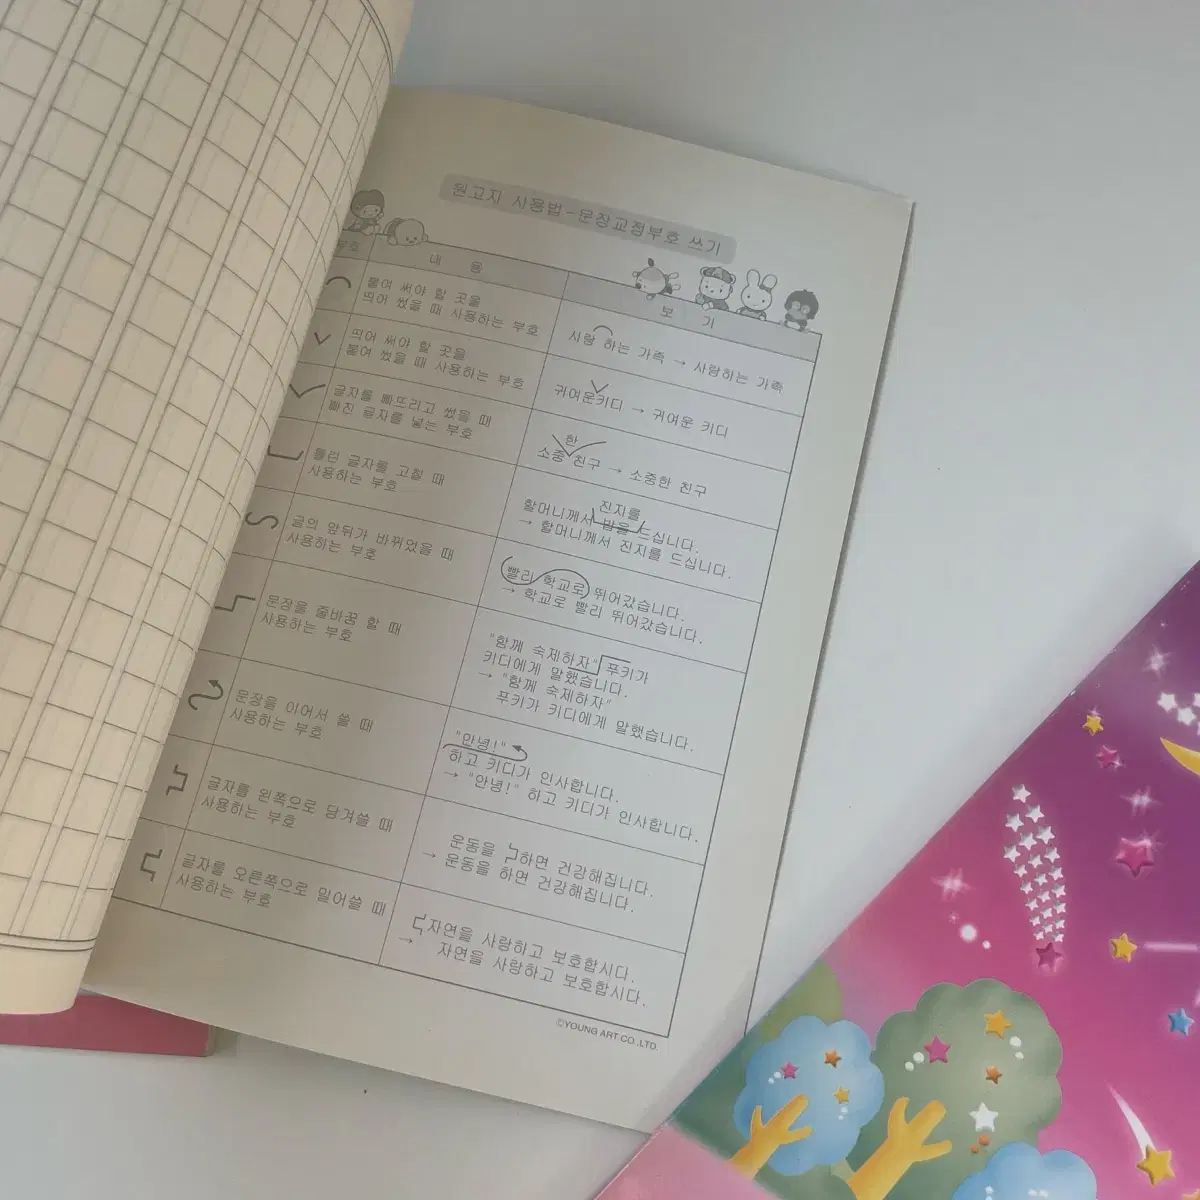 원고지 사용법-문장교정부호 쓰기
부호
내 용
보 기
붙여 써야 할 곳을
띄어 썼을 때 사용하는 부호
사랑 하는 가족 → 사랑하는 가족
띄어 써야 할 곳을
붙여 썼을 때 사용하는 부호
귀여운키디 → 귀여운 키디
글자를 빠뜨리고 썼을 때
빠진 글자를 넣는 부호
한
소중 친구 → 소중한 친구
틀린 글자를 고칠 때
사용하는 부호
진지를
할머니께서 밥을 드십니다.
→ 할머니께서 진지를 드십니다.
글의 앞뒤가 바뀌었을 때
사용하는 부호
빨리 학교로 뛰어갔습니다.
→ 학교로 빨리 뛰어갔습니다.
문장을 줄바꿈 할 때
사용하는 부호
"함께 숙제하자" 푸키가
키디에게 말했습니다.
→ "함께 숙제하자"
푸키가 키디에게 말했습니다.
문장을 이어서 쓸 때
사용하는 부호
"안녕!"
하고 키디가 인사합니다.
→ "안녕!" 하고 키디가 인사합니다.
글자를 왼쪽으로 당겨쓸 때
사용하는 부호
운동을 하면 건강해집니다.
→ 운동을 하면 건강해집니다.
글자를 오른쪽으로 밀어쓸 때
사용하는 부호
자연을 사랑하고 보호합시다.
→ 자연을 사랑하고 보호합시다.
©YOUNG ART CO.,LTD.